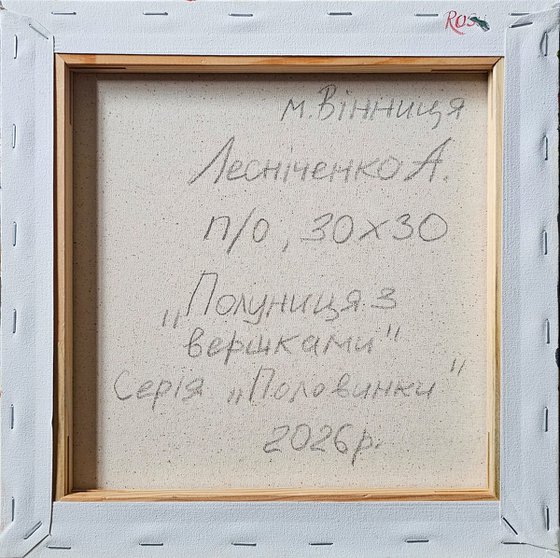 Rosa
м.Вінниця
Лесніченко А.
п/о, 30х30
„Полуниця з
вершками"
Серія „Половинки"
2026р.